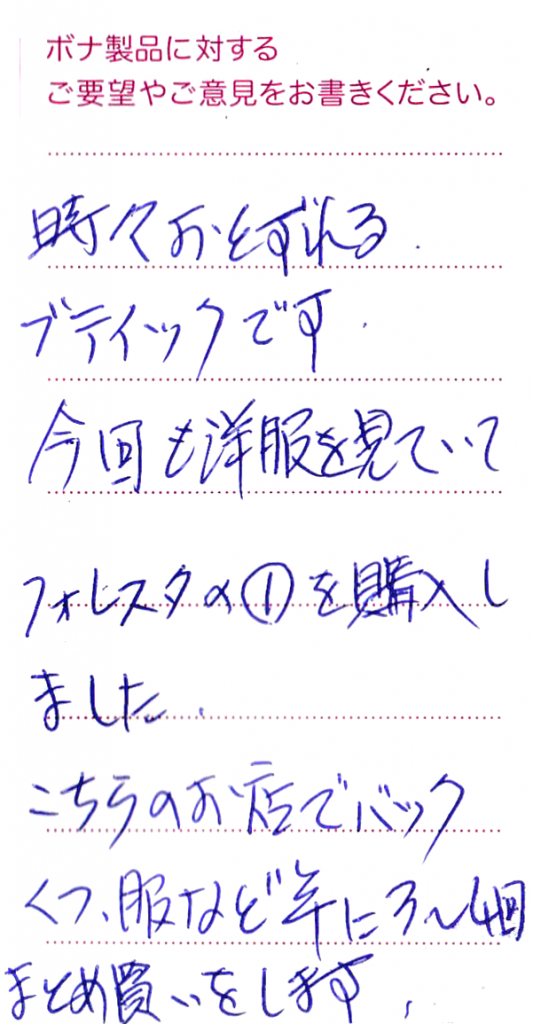 ボナ製品に対する
ご要望やご意見をお書きください。
時々おとずれる.
ブティックです.
今回も洋服を見ていて
フォレスタの①を購入し
ました.
こちらのお店でバック
くつ、服など年に3〜4回
まとめ買いをします.